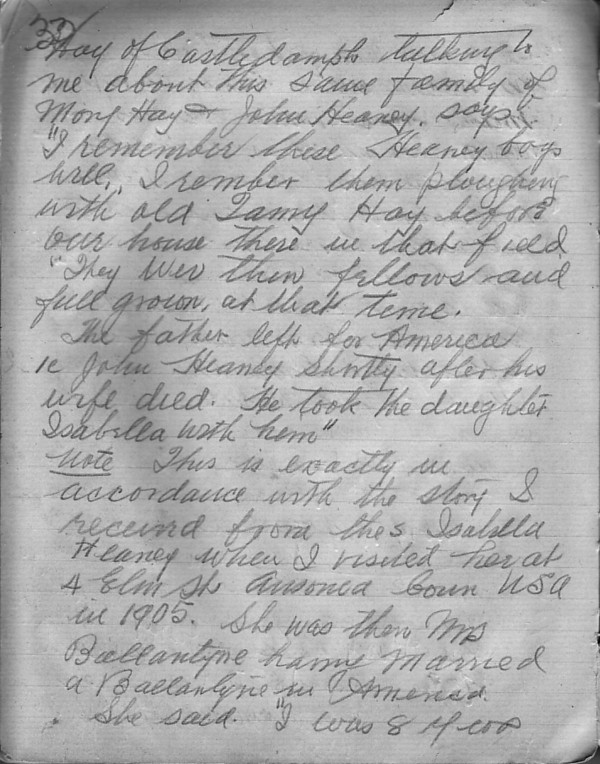 Hay of Castledamph talking to
me about this same family of
Mong Hay & John Heaney. says,
"I remember these Heaney boys
well, I rember them ploughing
with old Tamy Hay before
our house there in that field
"They wer then fellows and
full grown, at that time.
The father left for America
ie John Heaney shortly after his
wife died. He took the daughter
Isabella with hem"
Note This is exactly in
accordance with the story I
received from this Isabella
Heaney when I visited her at
4 Elm St Ansonea Conn USA
in 1905. She was then Mrs
Ballantyne having Married
a Ballantyne in America.
She said. "I was 8 y